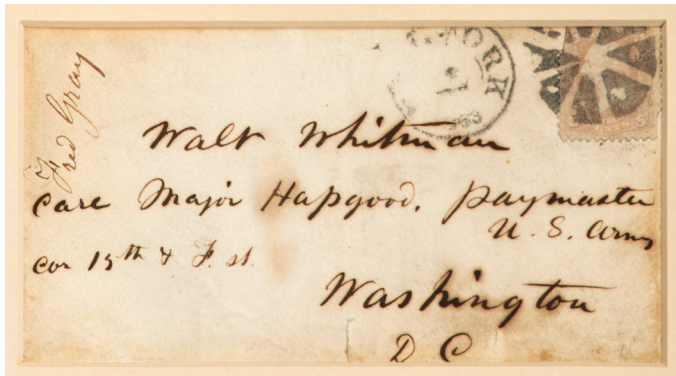 Fred Gray
YORK
Walt Whitman
care Major Hapgood, paymaster
U. S. Army
cor 15th & F. st.
Washington
D C